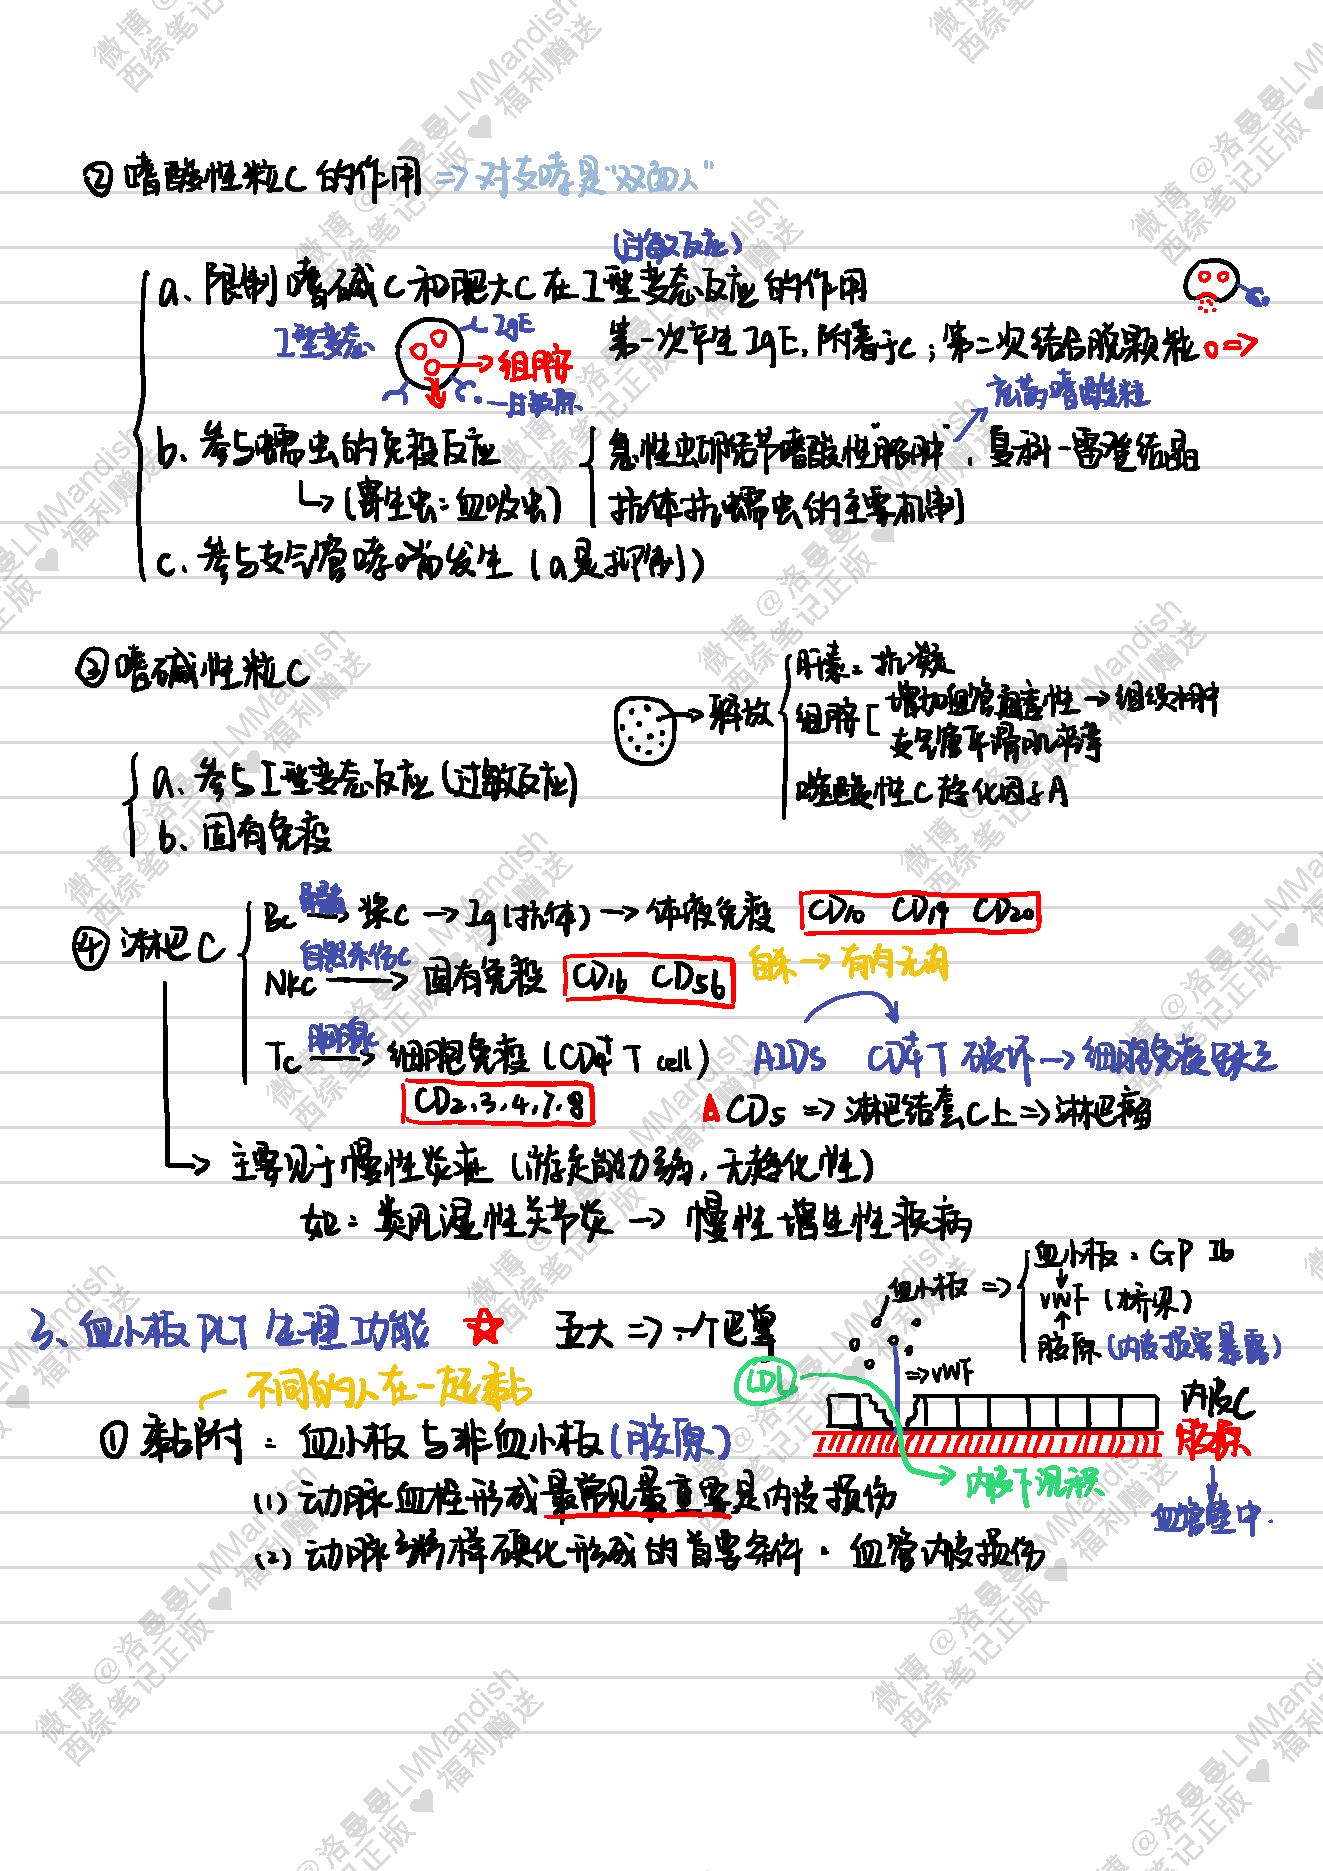 ②嗜酸性粒C的作用 => 对支哮是"双面人"
(过敏反应)
a、限制嗜碱C和肥大C在I型变态反应的作用
I型变态 IgE 组胺 过敏原
第一次产生IgE,附着于C;第二次结合脱颗粒 =>
充满嗜酸粒
b、参与蠕虫的免疫反应
急性虫卵结节嗜酸性脓肿、夏科-雷登结晶
→(寄生虫:血吸虫)
抗体抗蠕虫的主要机制
c、参与支气管哮喘发生(a是抑制)
③嗜碱性粒C
→释放
肝素:抗凝
组胺[增加血管通透性→组织水肿
支气管平滑肌痉挛
嗜酸性C趋化因子A
a、参与I型变态反应(过敏反应)
b、固有免疫
④淋巴C
Bc 骨髓→浆C→Ig(抗体)→体液免疫 CD10 CD19 CD20
NKc 自然杀伤C→固有免疫 CD16 CD56
自杀→有肉无肉
Tc 胸腺→细胞免疫(CD4+ T cell)
AIDS CD4+T破坏→细胞免疫缺乏
CD2、3、4、7、8
CD5=>淋巴结套C上=>淋巴瘤
→主要见于慢性炎症(游走能力弱,无趋化性)
如:类风湿性关节炎→慢性增生性疾病
3、血小板PLT生理功能 ☆ 五大=>一个巴掌
血小板=>
血小板:GPIb
vWF(桥梁)
胶原(内皮损害暴露)
=>vWF
LDL
内皮C
胶原
内皮下沉积
血管壁中.
不同的人在一起黏
①黏附:血小板与非血小板(胶原)
(1)动脉血栓形成最常见最重要是内皮损伤
(2)动脉粥样硬化形成的首要条件·血管内皮损伤
微博@洛曼曼LMMandish
西综笔记正版♥福利赠送